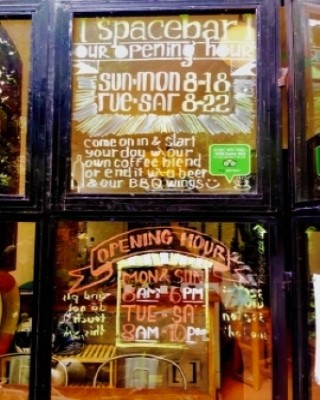 spacebar
our opening hour
SUN-MON 8-18
TUE-SAT 8-22
come on in & start
your day w our
own coffee blend
or end it w a beer
& our BBQ wings
OPENING HOUR
MON & SUN
8AM-6PM
TUE-SA
8AM-10PM